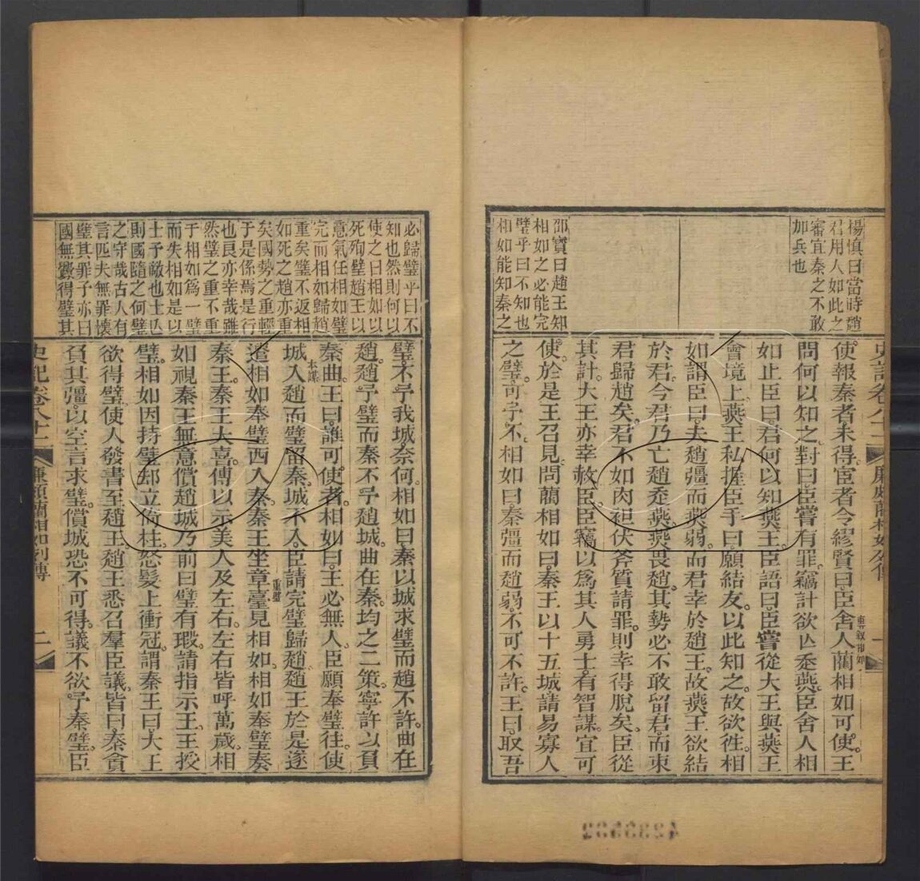 楊慎曰當時趙
君用人如此之
審宜秦之不敢
加兵也
邵寳曰趙王知
相如之必能完
璧乎曰不知也
相如能知秦之
使報秦者未得宦者令繆賢曰臣舍人藺相如可使王
問何以知之對曰臣嘗有罪竊計欲亾走燕臣舍人相
如止臣曰君何以知燕王臣語曰臣嘗從大王與燕王
會境上燕王私握臣手曰願結友以此知之故欲徃相
如謂臣曰夫趙彊而燕弱而君幸於趙王故燕王欲結
於君今君乃亡趙走燕燕畏趙其勢必不敢留君而束
君歸趙矣君不如肉袒伏斧質請罪則幸得脫矣臣從
其計大王亦幸赦臣臣竊以爲其人勇士有智謀宜可
使於是王召見問藺相如曰秦王以十五城請易寡人
之璧可予不相如曰秦彊而趙弱不可不許王曰取吾
必歸璧乎曰不
知也然則何以
使之曰相如以
死殉璧趙王以
意氣任相如璧
完而相如歸趙
重矣璧不返相
如死之趙亦重
矣國勢之重輕
于是係焉是行
也良亦幸哉雖
然璧之重不重
于相如爲一璧
而失相如是以
士予敵也士亾
則國隨之何璧
之守哉古人有
言匹夫無罪懷
璧其罪子亦曰
國無釁得璧其
璧不予我城奈何相如曰秦以城求璧而趙不許曲在
趙趙予璧而秦不予趙城曲在秦均之二策寧許以負
秦曲王曰誰可使者相如曰王必無人臣願奉璧往使
城入趙而璧留秦城不入臣請完璧歸趙趙王於是遂
遣相如奉璧西入秦秦王坐章臺見相如相如奉璧奏
秦王秦王大喜傳以示美人及左右左右皆呼萬歲相
如視秦王無意償趙城乃前曰璧有瑕請指示王王授
璧相如因持璧郤立倚柱怒髮上衝冠謂秦王曰大王
欲得璧使人發書至趙王趙王悉召羣臣議皆曰秦貪
負其彊以空言求璧償城恐不可得議不欲予秦璧臣
史記卷八十一 廉頗藺相如列傳 二